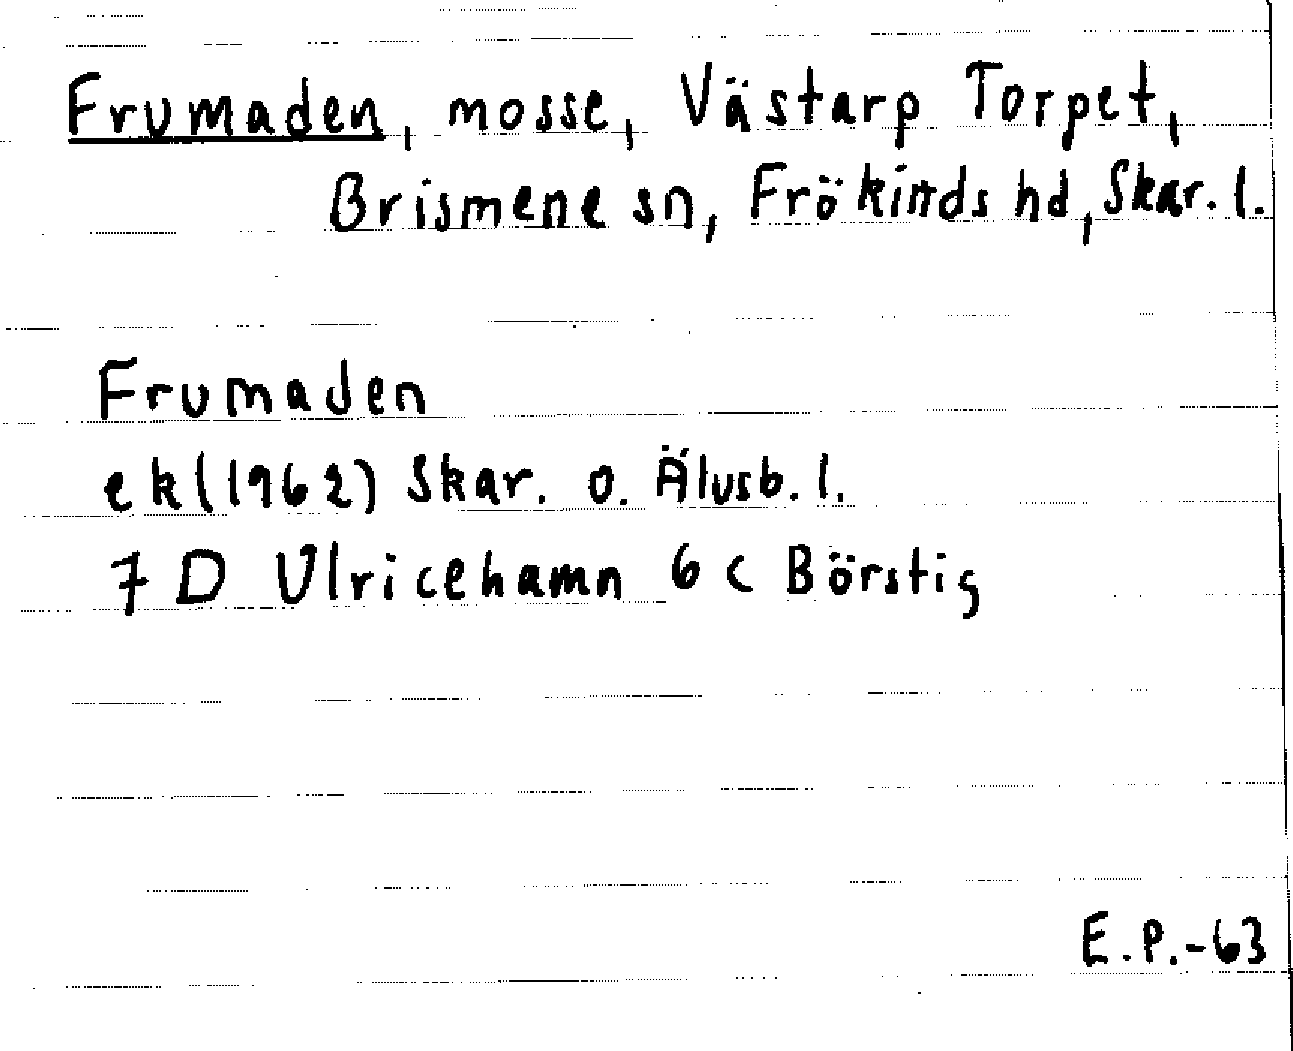 Frumaden, mosse, Västarp Torpet,
Brismene sn, Frökinds hd, Skar. l.
Frumaden
ek (1962) Skar. o. Älvsb. l.
7 D Ulricehamn 6 c Börstig
E.P.-63